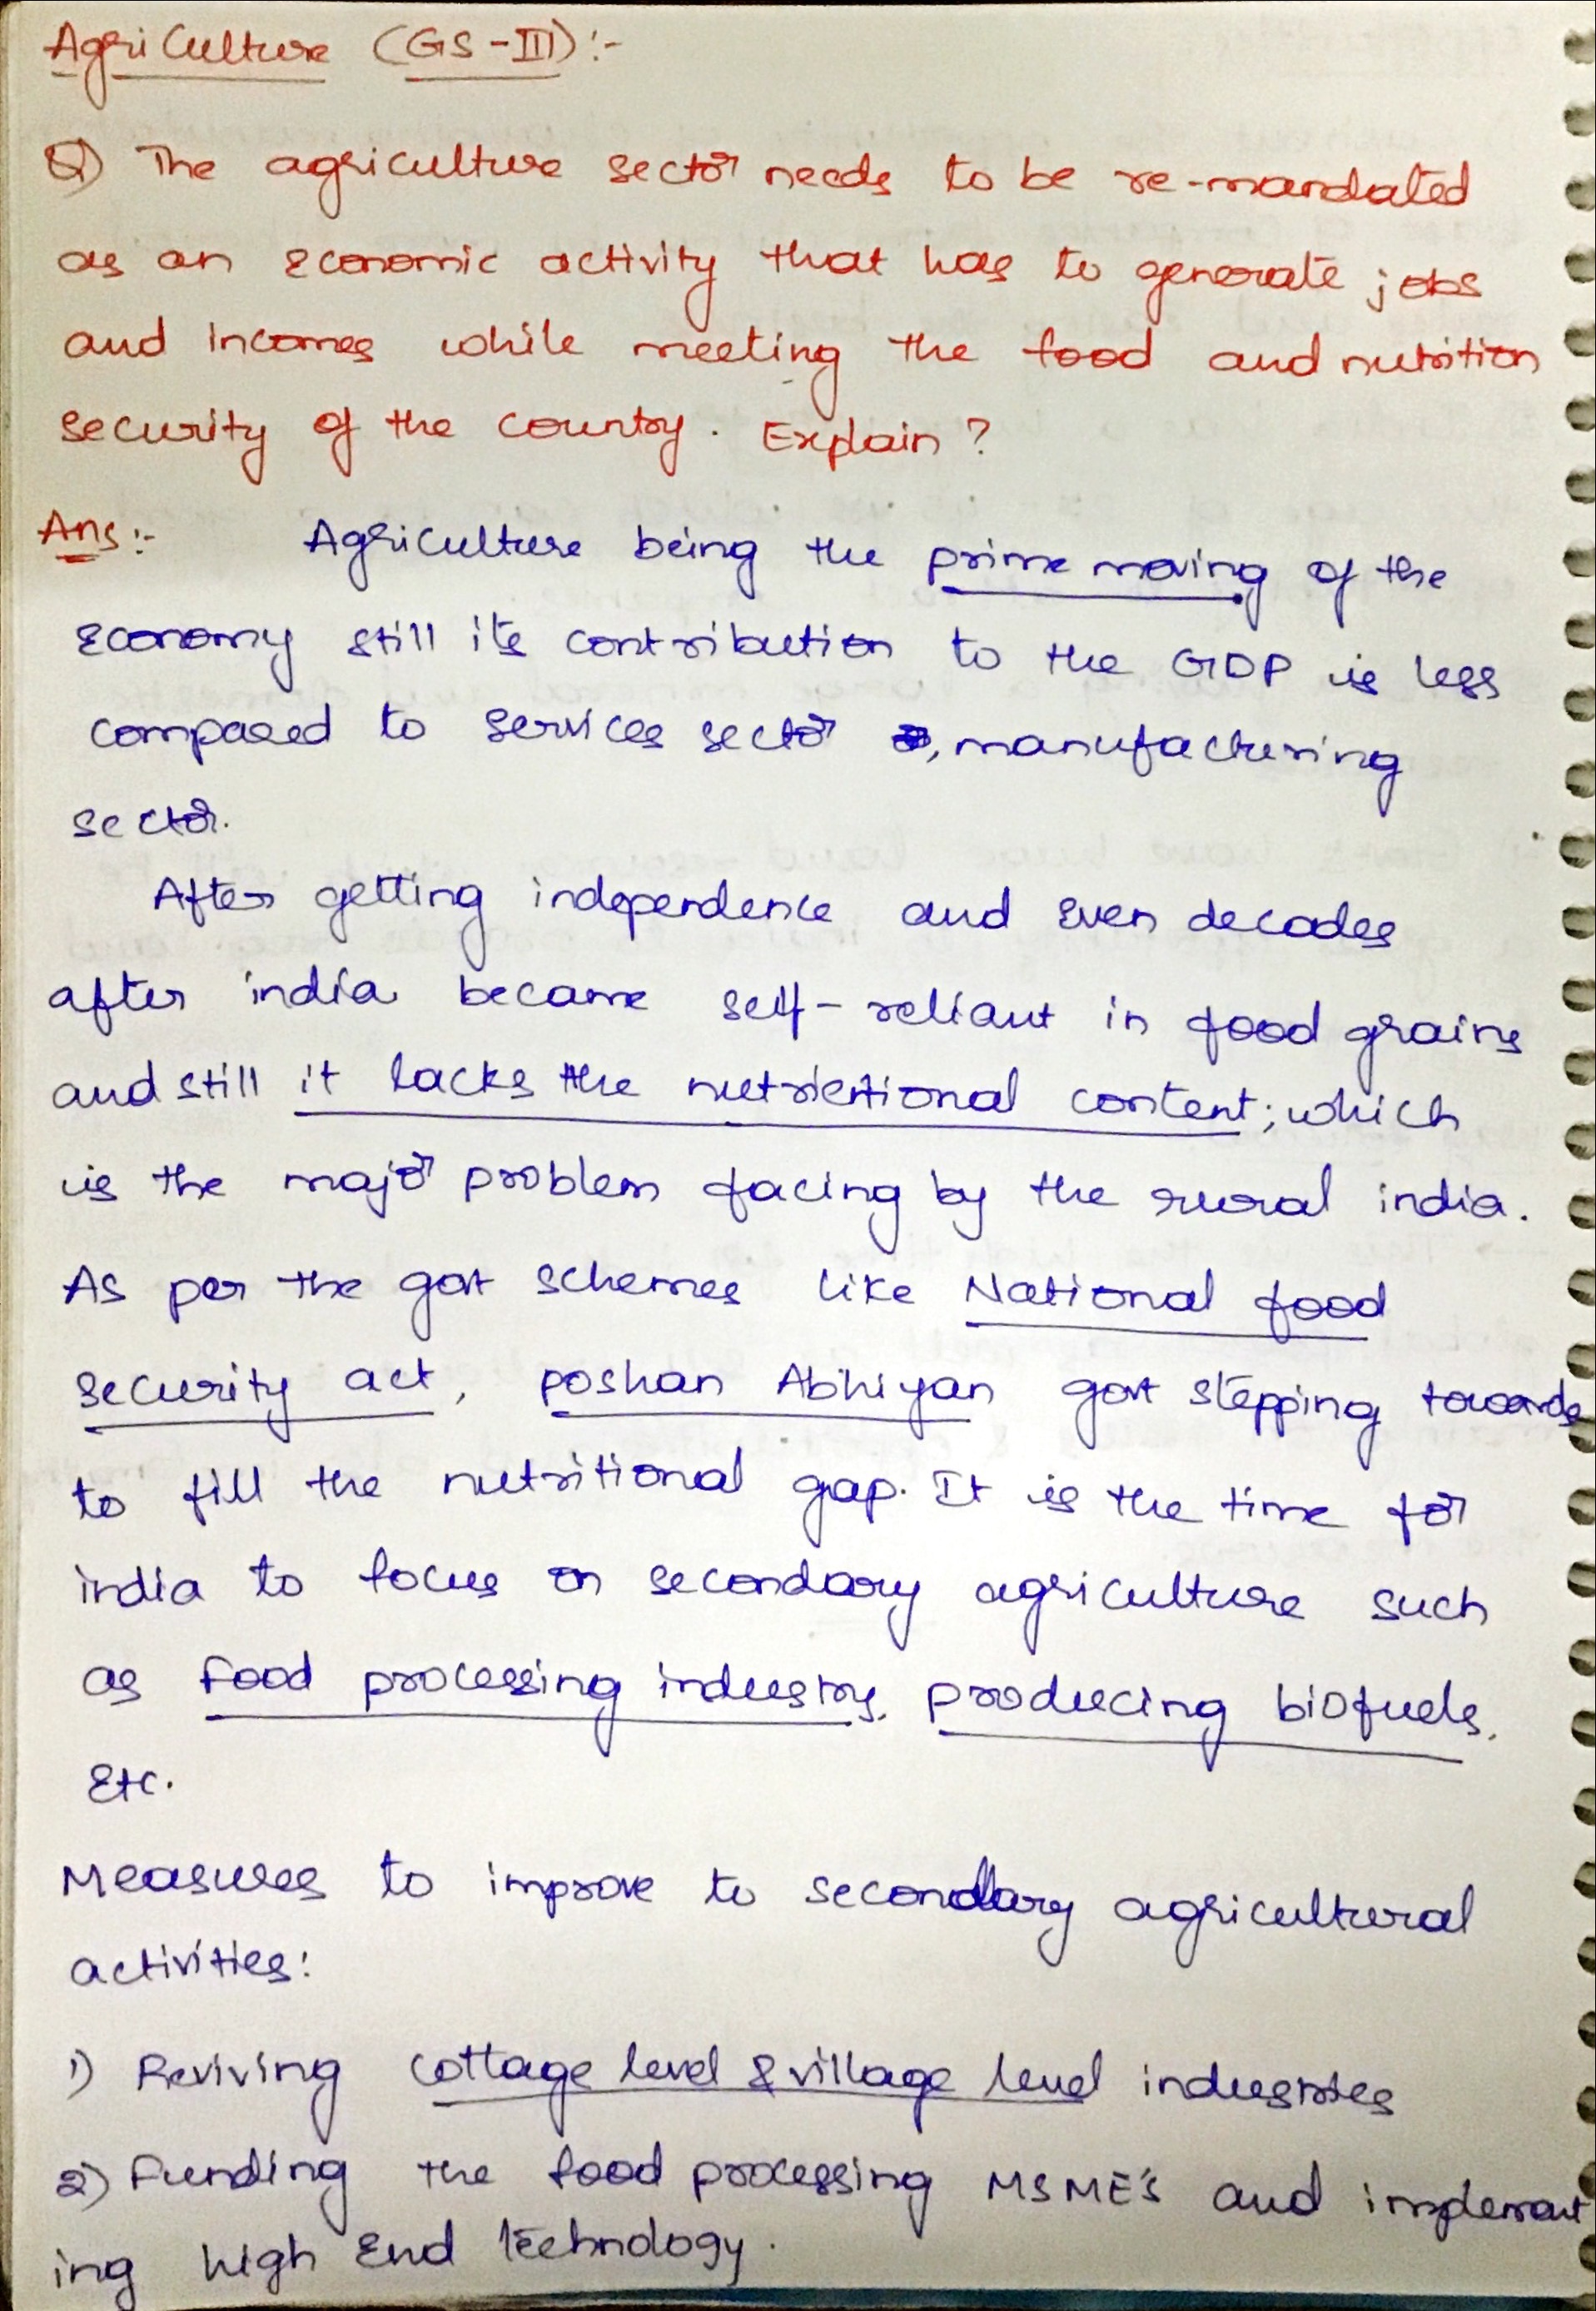 Agriculture (GS-III):-
Q) The agriculture sector needs to be re-mandated
as an Economic activity that has to generate jobs
and incomes while meeting the food and nutrition
security of the country. Explain?
Ans:- Agriculture being the prime moving of the
Economy still its contribution to the GDP is less
compared to services sector , manufacturing
sector.
After getting independence and Even decades
after india became self-reliant in food grains
and still it lacks the nutrientional content; which
is the major problem facing by the rural india.
As per the govt schemes like National food
security act, poshan Abhiyan govt stepping towards
to fill the nutritional gap. It is the time for
india to focus on secondary agriculture such
as food processing industry, producing biofuels,
Etc.
Measures to improve to secondary agricultural
activities:
1) Reviving cottage level & village level industries
2) Funding the food processing MSME's and implement
ing high End technology.